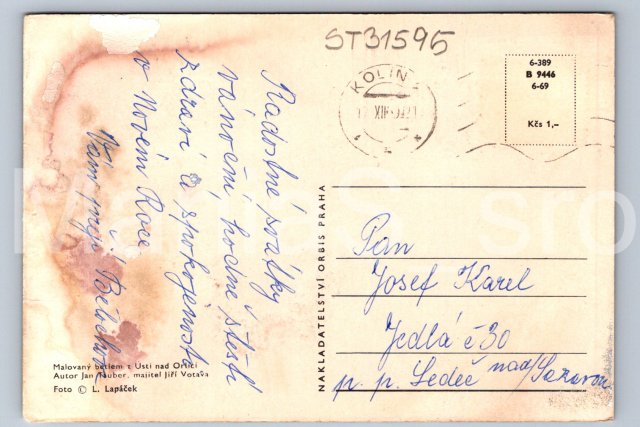 ST31595
KOLÍN
6-389
B 9446
6-69
Kčs 1,-
Radostné svátky
vánoční, hodně štěstí
zdraví a spokojenosti
v Novém Roce
Vám přejí
NAKLADATELSTVÍ ORBIS PRAHA
Pan
Josef Karel
Jedlá č 30
p. p. Ledeč nad/Sázavou
Malovaný betlém z Ústí nad Orlicí
Autor Jan Tauber, majitel Jiří Votava
Foto © L. Lapáček